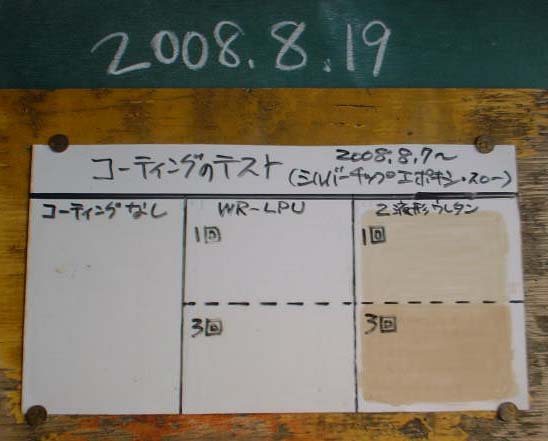 2008.8.19
コーティングのテスト
2008.8.7〜
(シルバーチップエポキシ・スロー)
コーティングなし
WR-LPU
2液形ウレタン
1回
1回
3回
3回